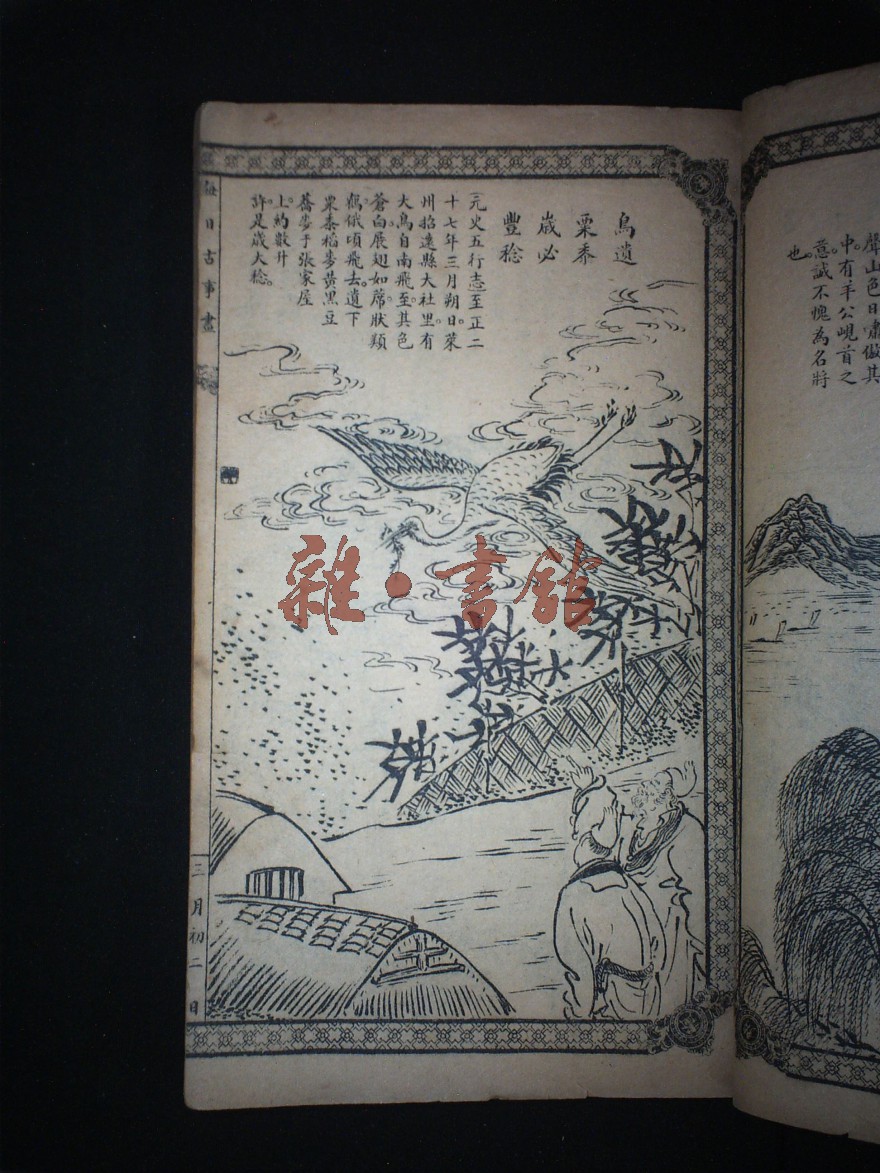 聲山色日嘯傲其
中。有羊公峴首之
意。誠不愧為名將
也。
鳥遺
粟黍
歲必
豐稔
(元史五行志)至正二
十七年三月朔日。萊
州招遠縣大社里。有
大鳥自南飛至。其色
蒼白。展翅如蓆。狀類
鶴。俄頃飛去。遺下
粟黍稻麥黃黑豆
蕎麥于張家屋
上。約數升
許。是歲大稔。
每日古事畫
三月初二日
雜·書館